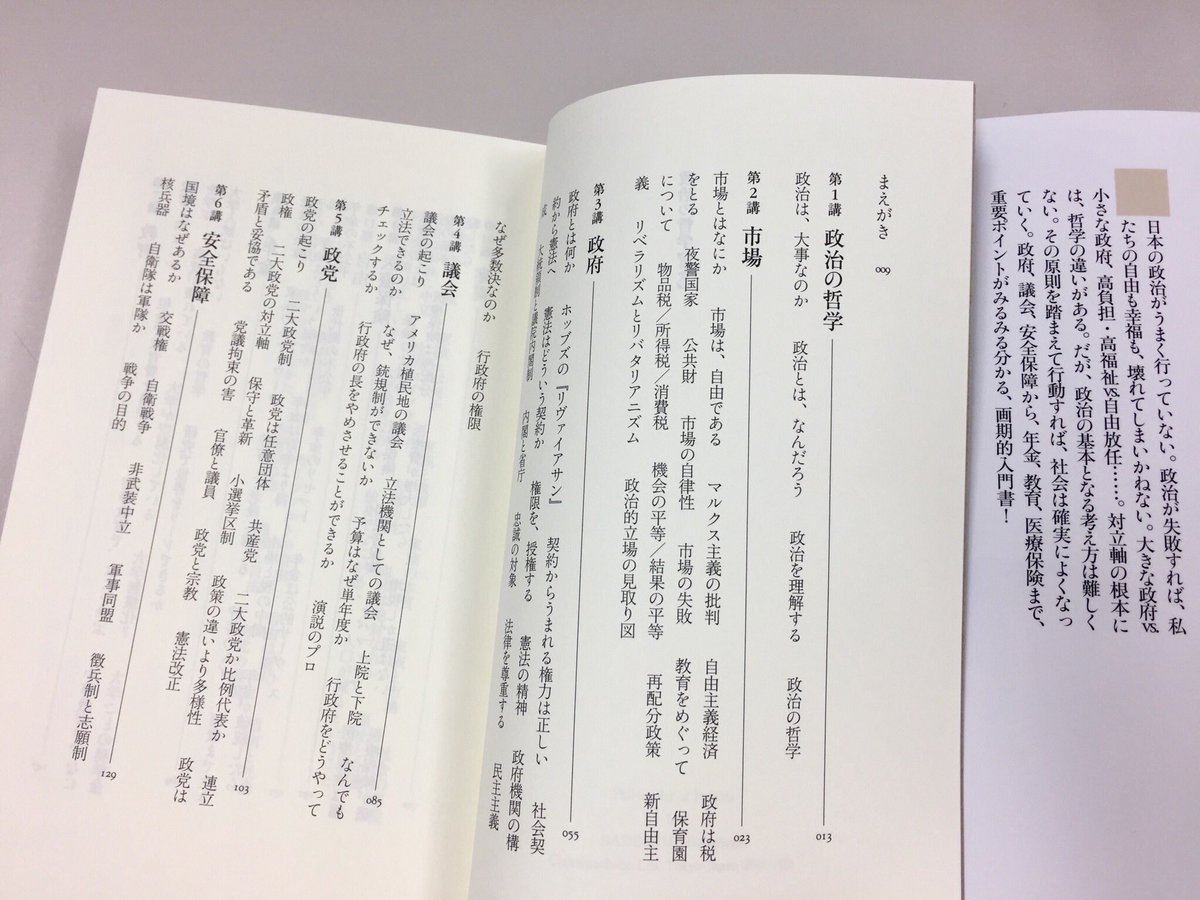 日本の政治がうまく行っていない。政治が失敗すれば、私
たちの自由も幸福も、壊れてしまいかねない。大きな政府vs.
小さな政府、高負担・高福祉vs.自由放任……。対立軸の根本に
は、哲学の違いがある。だが、政治の基本となる考え方は難しく
ない。その原則を踏まえて行動すれば、社会は確実によくなっ
ていく。政府、議会、安全保障から、年金、教育、医療保険まで、
重要ポイントがみるみる分かる、画期的入門書！
まえがき 009
第1講 政治の哲学 013
政治は、大事なのか 政治とは、なんだろう 政治を理解する 政治の哲学
第2講 市場 023
市場とはなにか 市場は、自由である マルクス主義の批判 自由主義経済 政府は税
をとる 夜警国家 公共財 市場の自律性 市場の失敗 教育をめぐって 保育園
について 物品税／所得税／消費税 機会の平等／結果の平等 再配分政策 新自由主
義 リベラリズムとリバタリアニズム 政治的立場の見取り図
第3講 政府 055
政府とは何か ホッブズの『リヴァイアサン』 契約からうまれる権力は正しい 社会契
約から憲法へ 憲法はどういう契約か 権限を、授権する 憲法の精神 政府機関の構
成 大統領制と議院内閣制 内閣と省庁 忠誠の対象 法律を尊重する 民主主義
なぜ多数決なのか 行政府の権限
第4講 議会 085
議会の起こり アメリカ植民地の議会 立法機関としての議会 上院と下院 なんでも
立法できるのか なぜ、銃規制ができないか 予算はなぜ単年度か 行政府をどうやって
チェックするか 行政府の長をやめさせることができるか 演説のプロ
第5講 政党 103
政党の起こり 二大政党制 政党は任意団体 共産党 二大政党か比例代表か 連立
政権 二大政党の対立軸 保守と革新 小選挙区制 政策の違いより多様性 政党は
矛盾と妥協である 党議拘束の害 官僚と議員 政党と宗教 憲法改正
第6講 安全保障 129
国境はなぜあるか 交戦権 自衛戦争 非武装中立 軍事同盟 徴兵制と志願制
核兵器 自衛隊は軍隊か 戦争の目的